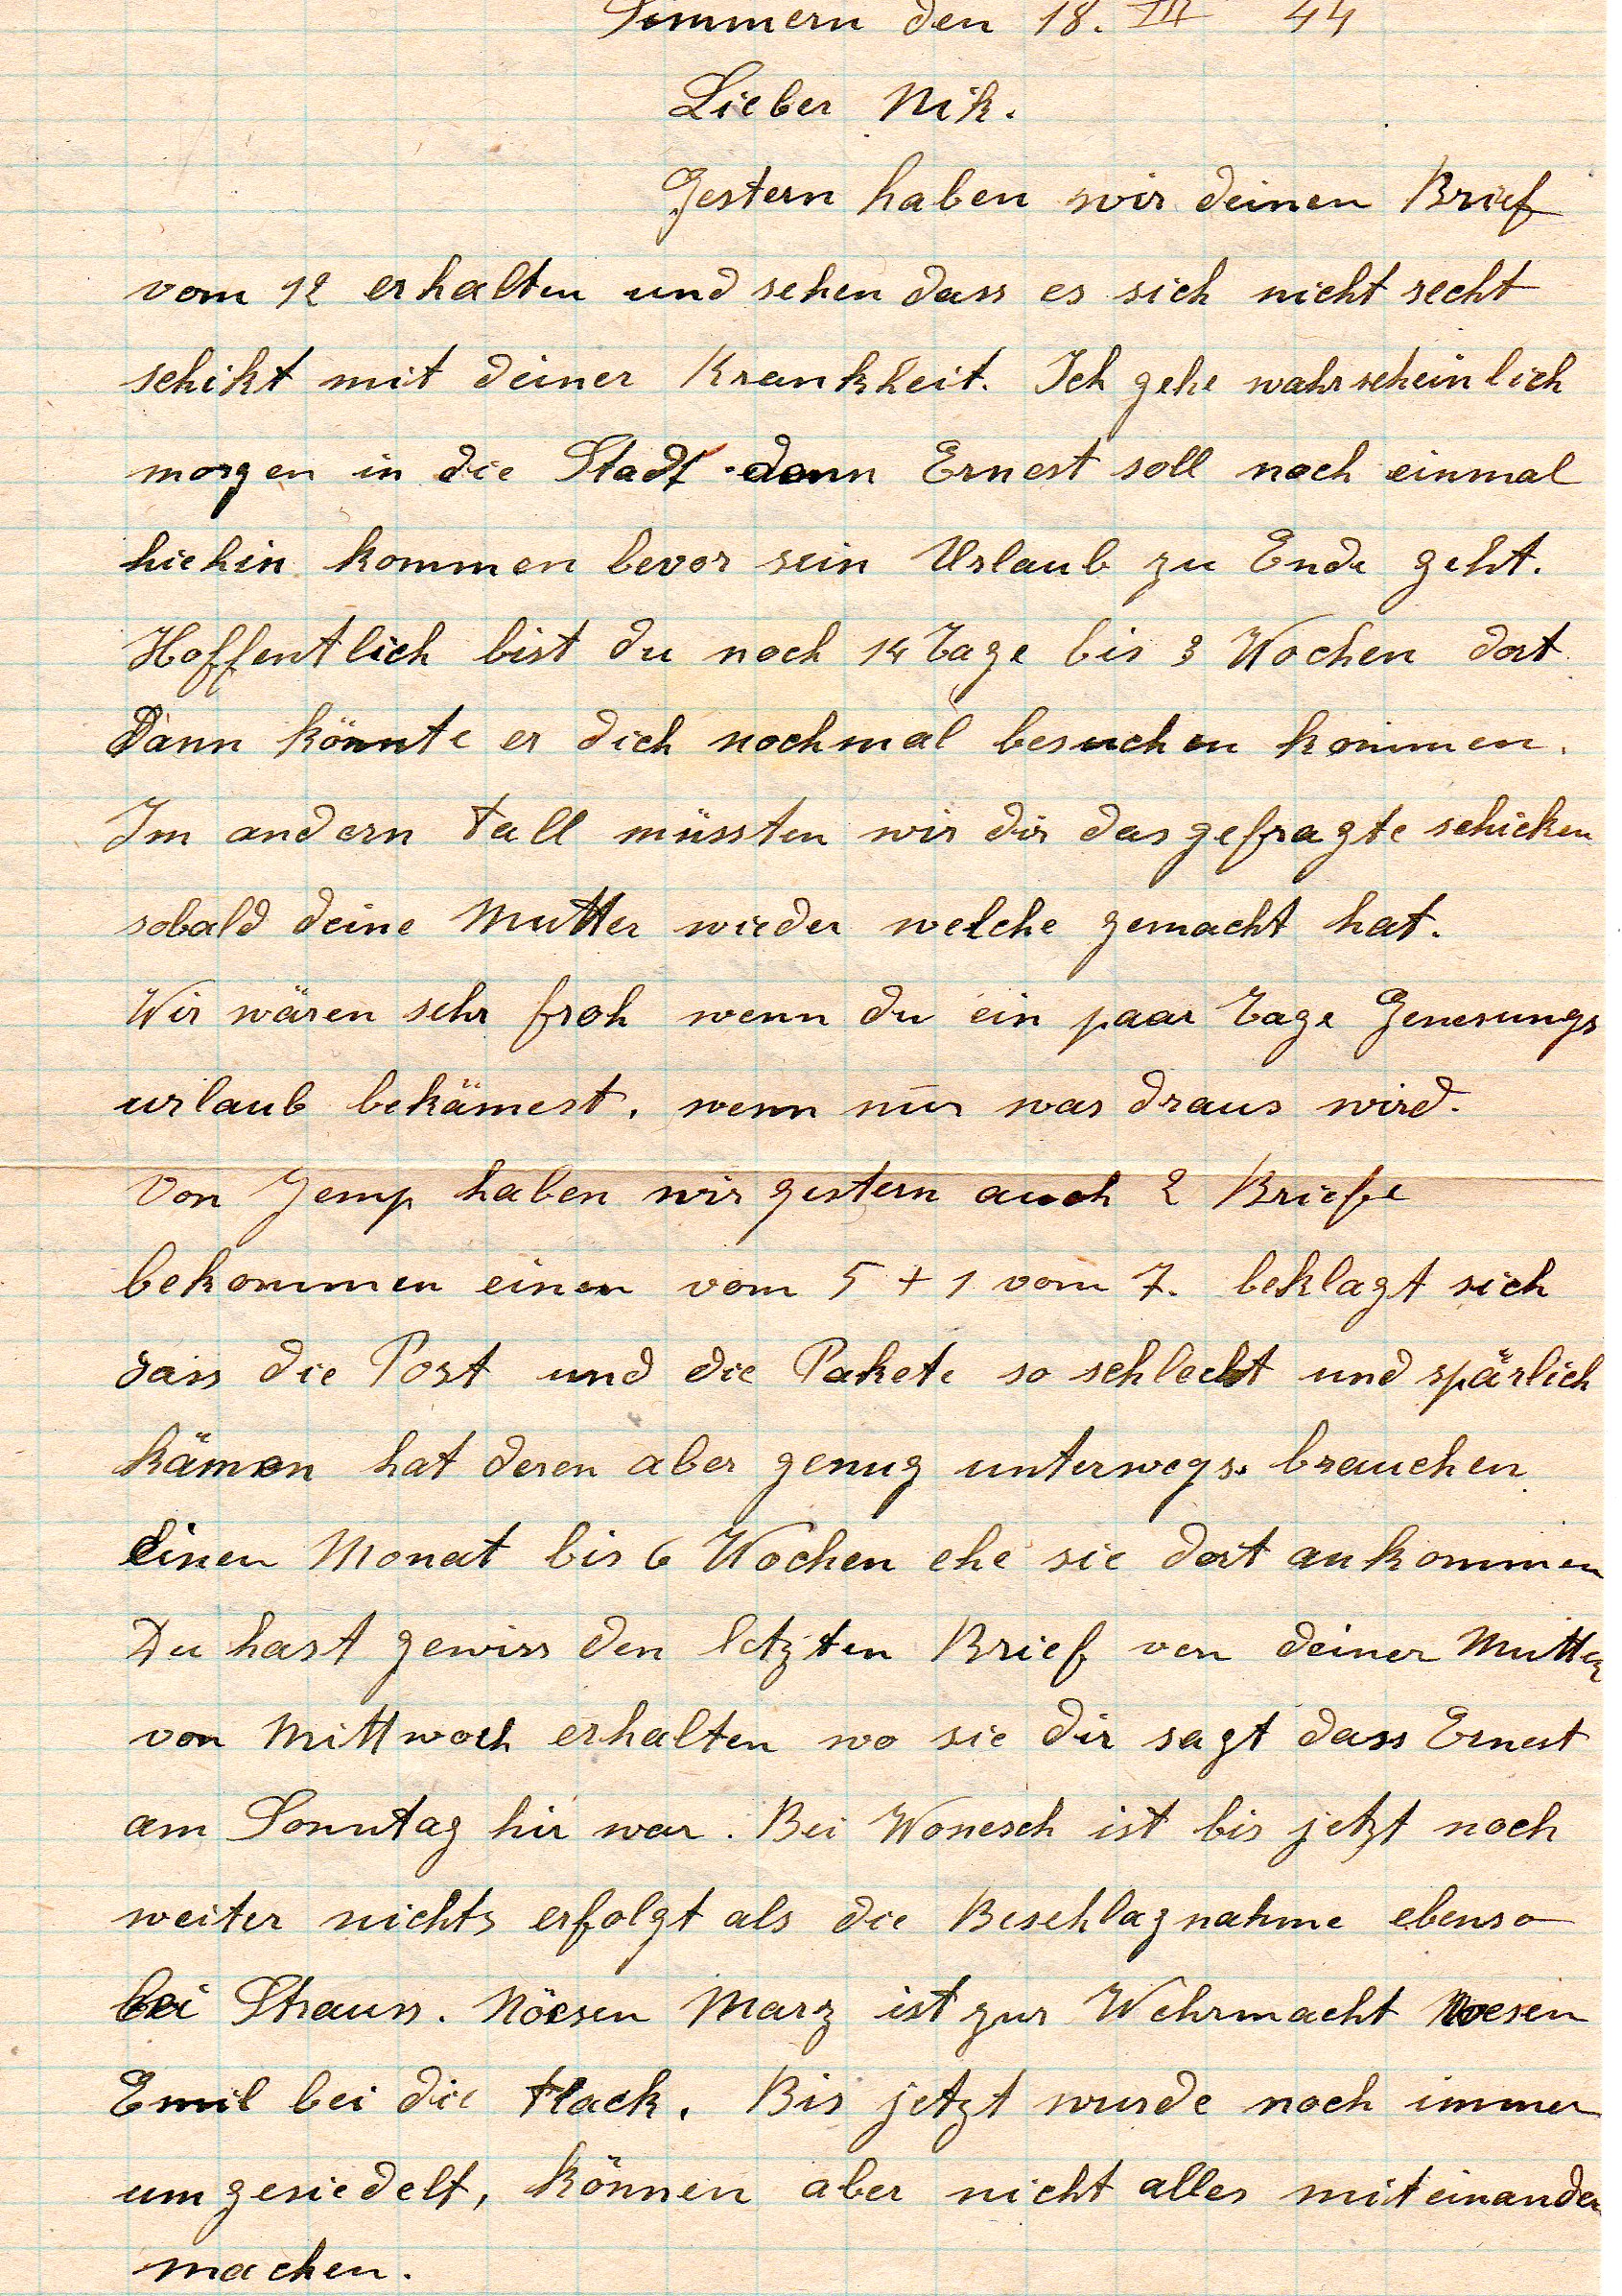 Simmern den 18. III 44
Lieber Nik.
Gestern haben wir deinen Brief
vom 12 erhalten und sehen dass es sich nicht recht
schikt mit deiner Krankheit. Ich gehe wahrscheinlich
morgen in die Stadt denn Ernest soll noch einmal
hiehin kommen bevor sein Urlaub zu Ende geht.
Hoffentlich bist du noch 14 Tage bis 3 Wochen dort
Dann könnte er dich nochmal besuchen kommen.
Im andern Fall müssten wir dir das gefragte schicken
sobald deine Mutter wieder welche gemacht hat.
Wir wären sehr froh wenn du ein paar Tage Genesungs
urlaub bekämest, wenn nur was draus wird.
Von Jemp haben wir gestern auch 2 Briefe
bekommen einen vom 5 + 1 vom 7. beklagt sich
dass die Post und die Pakete so schlecht und spärlich
kämen hat deren aber genug unterwegs. brauchen
einen Monat bis 6 Wochen ehe sie dort ankommen
Du hast gewiss den letzten Brief von deiner Mutter
von Mittwoch erhalten wo sie dir sagt dass Ernest
am Sonntag hir war. Bei Wonesch ist bis jetzt noch
weiter nichts erfolgt als die Beschlagnahme ebenso
bei Strauss. Nöesen Marz ist zur Wehrmacht Noesen
Emil bei die Flack. Bis jetzt wurde noch immer
umgesiedelt, können aber nicht alles miteinander
machen.